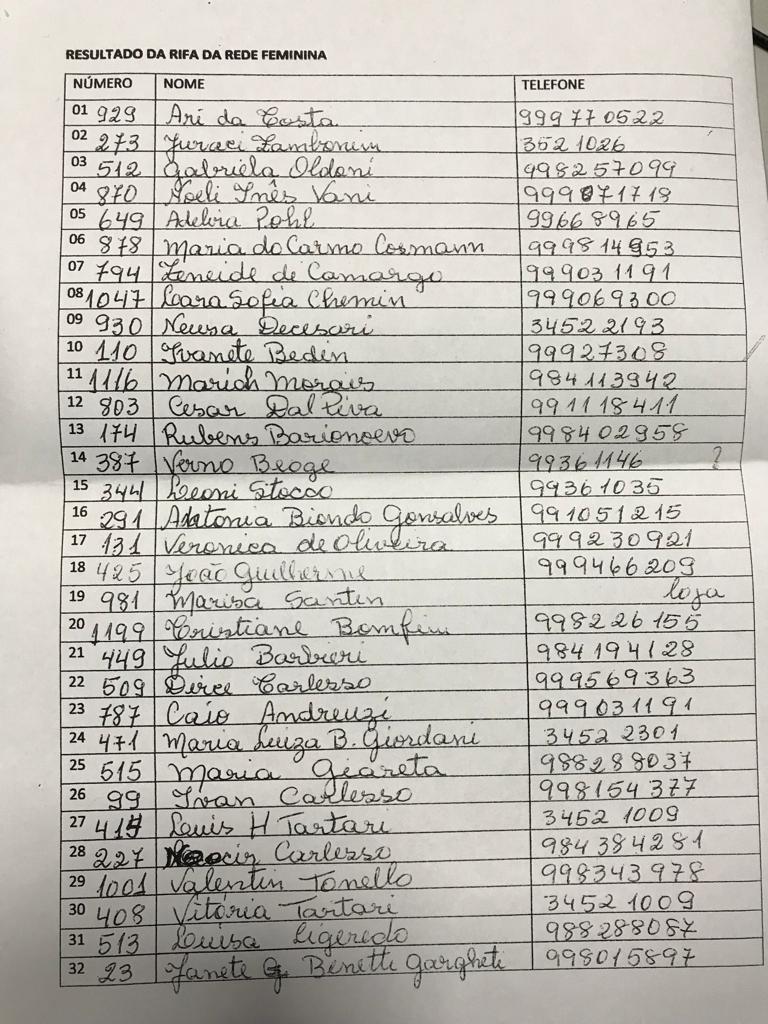 RESULTADO DA RIFA DA REDE FEMININA
NÚMERO NOME TELEFONE
01 929 Ari da Costa 999770522
02 273 Juraci Zambonim 3521026
03 512 Gabriela Oldoni 998257099
04 870 Noeli Inês Vani 999071718
05 649 Adelvia Pohl 99668965
06 878 Maria do Carmo Cosmann 999814953
07 794 Zeneide de Camargo 999031191
08 1047 Sofia Chemin 999069300
09 930 Neusa Decesari 34522193
10 110 Ivanete Bedin 99927308
11 1116 Morais 984113942
12 803 Cesar Dal Piva 991118411
13 174 Rubens 998402958
14 387 Verno Beoge 99361146 ?
15 344 Leoni Stocco 99361035
16 291 Antonia Biondo Gonsalves 991051215
17 131 Veronica de Oliveira 999230921
18 425 João Guilherme 999466209
19 981 Marisa Santin loja
20 1199 Cristiane Bomfim 998226155
21 449 Julio Barbieri 984194128
22 509 Dirce Carlesso 999569363
23 787 Caio Andreuzi 999031191
24 471 Maria Luiza B. Giordani 34522301
25 515 Maria Giareta 988288037
26 99 Ivan Carlesso 998154377
27 Tartari 34521009
28 227 Carlesso 984384281
29 1001 Valentin Tonello 998343978
30 408 Vitória Tartari 34521009
31 513 Luisa Ligeredo 988288087
32 23 Janete Benetti 998015897